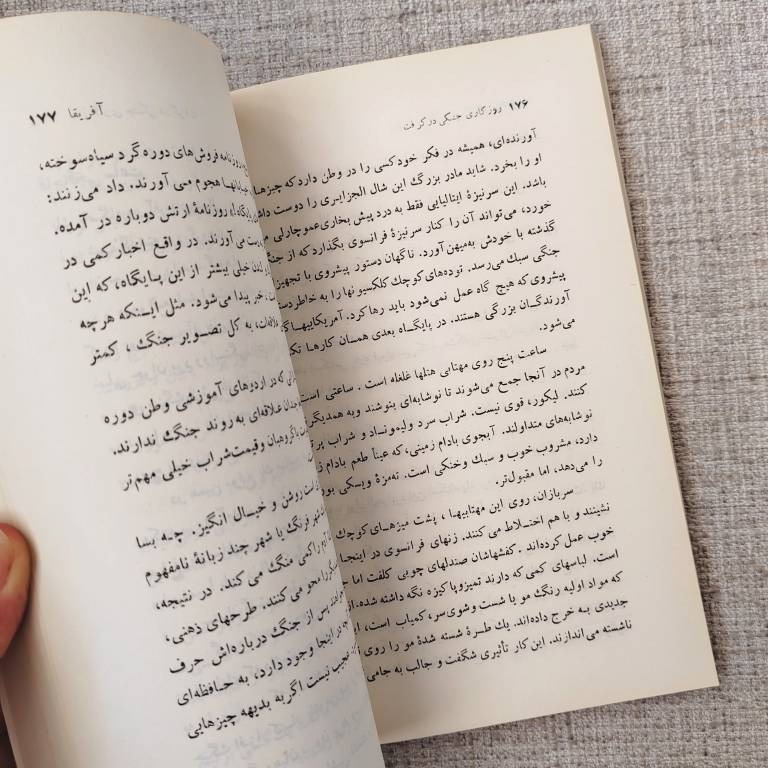 ۱۷۶ روزگاری جنگی در گرفت
آورنده‌ای، همیشه در فکر خود کسی را در وطن دارد که چیزها
او را بخرد. شاید مادر بزرگ این شال الجزایری را دوست داش
باشد. این سرنیزهٔ ایتالیایی فقط به درد پیش بخاری عموچارلی می
خورد، می‌تواند آن را کنار سرنیزهٔ فرانسوی بگذارد که از جنگ
گذشته با خودش به‌میهن آورد. ناگهان دستور پیشروی با تجهیز
جنگی سبک می‌رسد. توده‌های کوچک کلکسیونها را به خاطر دست
پیشروی که هیچ گاه عمل نمی‌شود باید رها کرد. آمریکاییها
آورندگان بزرگی هستند. در پایگاه بعدی همان کارها تک
می‌شود.
ساعت پنج روی مهتابی هتلها غلغله است. ساعتی است
مردم در آنجا جمع می‌شوند تا نوشابه‌ای بنوشند و به همدیگر
کنند. لیکور، قوی نیست. شراب سرد و لیموناد و شراب پر
نوشابه‌های متداولند. آبجوی بادام زمینی، که عیناً طعم بادام ز
دارد، مشروب خوب و سبک و خنکی است. ته‌مزهٔ ویسکی بور
را می‌دهد، اما مقبول‌تر.
سربازان، روی این مهتابیها، پشت میزهای کوچک
نشینند و با هم اختلاط می کنند. زنهای فرانسوی در اینجا
خوب عمل کرده‌اند. کفشهاشان صندلهای چوبی کلفت اما
است. لباسهای کمی که دارند تمیز و پاکیزه نگه داشته شده.
که مواد اولیه رنگ مو یا شست و شوی سر، کمیاب است،
جدیدی به خرج داده‌اند. یک طرهٔ شسته شدهٔ مو را روی
ناشسته می‌اندازند. این کار تأثیری شگفت و جالب به جامی
آفریقا ۱۷۷
روزنامه فروش‌های دوره گرد سیاه‌سوخته،
هجوم می آورند. داد می‌زنند:
روزنامهٔ ارتش دوباره در آمده.
می‌آورند. در واقع اخبار کمی در
خیلی بیشتر از این پایگاه، که این
خبر پیدا می‌شود. مثل اینکه هرچه
به کل تصویر جنگ، کمتر
که در اردوهای آموزشی وطن دوره
چندان علاقه‌ای به روند جنگ ندارند.
گروهبان و قیمت شراب خیلی مهم‌تر
است روشن و خیال انگیز. چه بسا
شهر فرنگ یا شهر چند زبانهٔ نامفهوم
آدم را کمی منگ می کند. در نتیجه،
را محو می کنند. طرحهای ذهنی،
پس از جنگ درباره‌اش حرف
در اینجا وجود دارد، به حافظه‌ای
عجیب نیست اگر به بدیهه چیزهایی